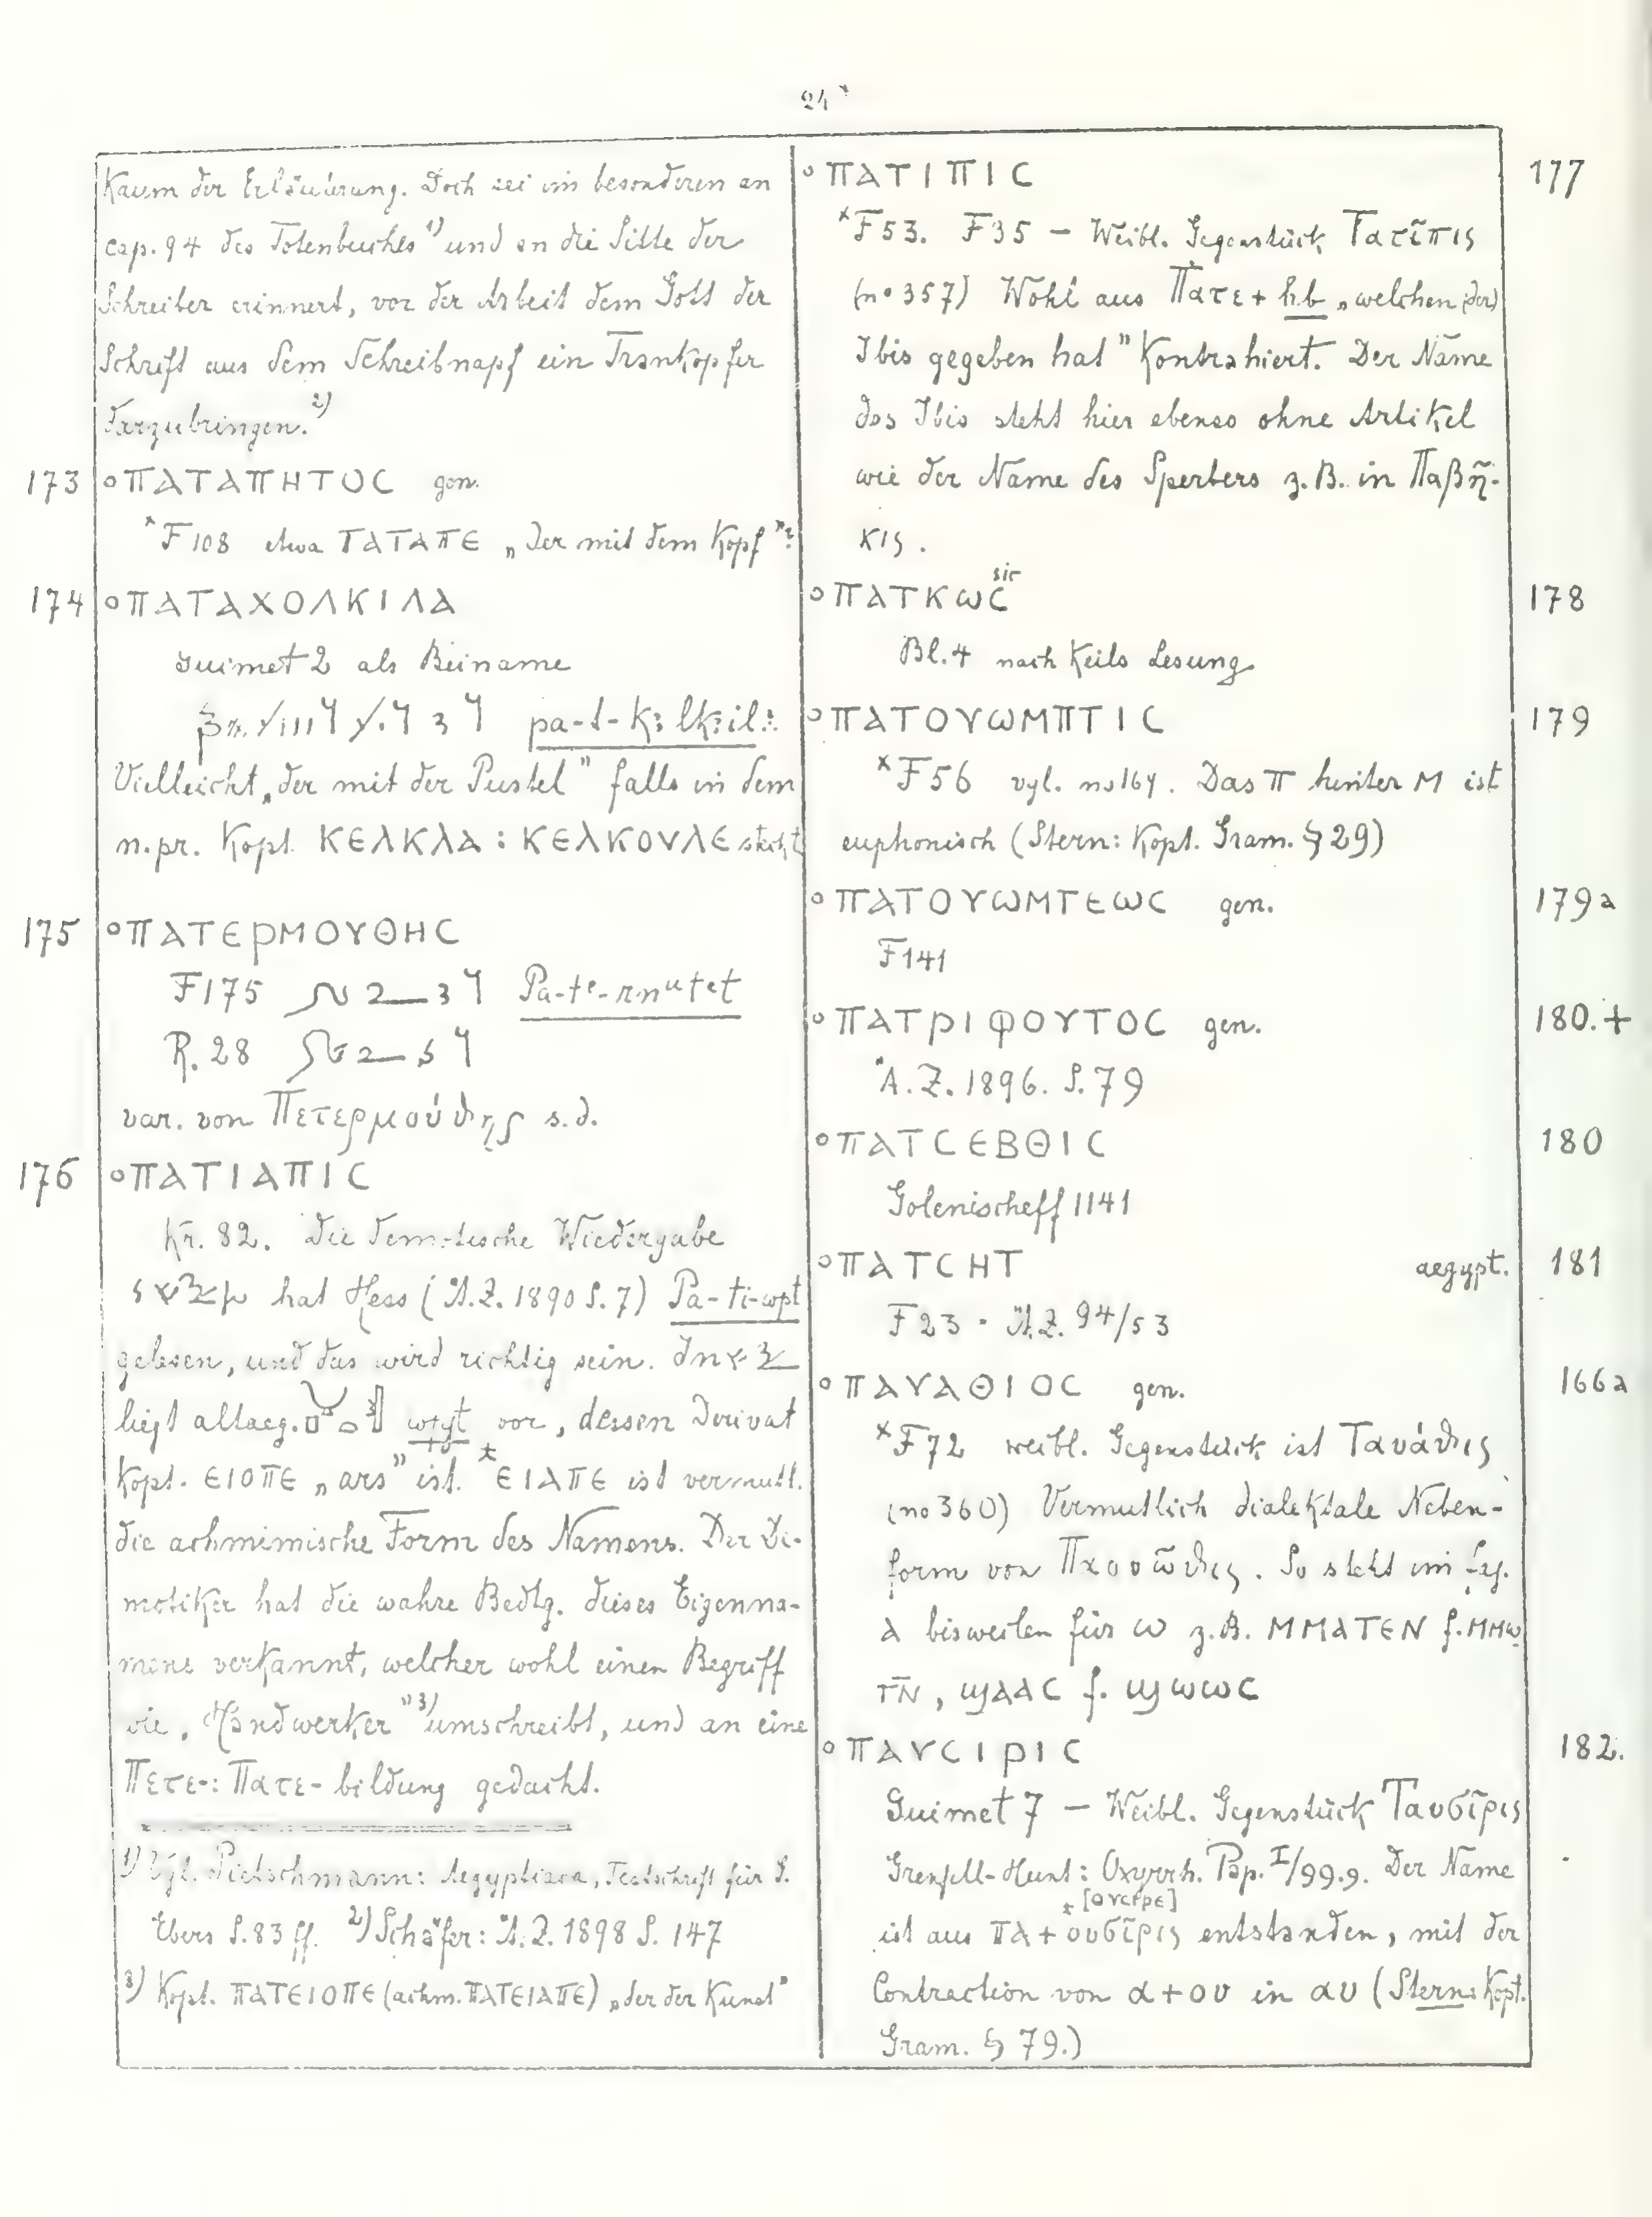 24*
Kaum der Erläuterung. Doch sei im besonderen an
cap. 94 des Totenbuches ¹⁾ und an die Sitte der
Schreiber erinnert, vor der Arbeit dem Gott der
Schrift aus dem Schreibnapf ein Trankopfer
darzubringen. ²⁾
173 °ΠΑΤΑΠΗΤΟC gen.
*F 108 etwa ΠΑΤΑΠΕ „der mit dem Kopf"?
174 °ΠΑΤΑΧΟΛΚΙΛΑ
Guimet 2 als Beiname
pa-t-
Vielleicht „der mit der Pustel" falls in dem
n.pr. Kopt. ΚΕΛΚΛΑ : ΚΕΛΚΟΥΛΕ steckt
175 °ΠΑΤΕΡΜΟΥΘΗC
F 175 Pa-tᵉ-rnᵘtet
R. 28
var. von Πετερμούθης s.d.
176 °ΠΑΤΙΑΠΙC
Kr. 82. Die demotische Wiedergabe
hat Hess (Ä.Z. 1890 S. 7) Pa-ti-wpt
gelesen, und das wird richtig sein. In
liegt altaeg. vor, dessen Derivat
Kopt. ΕΙΟΠΕ „ars" ist. *ΕΙΑΠΕ ist vermutl.
die achmimische Form des Namens. Der De-
motiker hat die wahre Bedtg. dieses Eigenna-
mens verkannt, welcher wohl einen Begriff
wie „Handwerker" ³⁾ umschreibt, und an eine
Πετε-: Πατε- bildung gedacht.
¹⁾ Vgl. Pietschmann: Aegyptiaca, Festschrift für G.
Ebers S. 83 ff. ²⁾ Schäfer: Ä.Z. 1898 S. 147
³⁾ Kopt. ΠΑΤΕΙΟΠΕ (achm. ΠΑΤΕΙΑΠΕ) „der der Kunst"
°ΠΑΤΙΠΙC 177
*F 53. F 35 – Weibl. Gegenstück Τατῖπις
(no 357) Wohl aus Πατε + hb „welchen (der)
Ibis gegeben hat" Kontrahiert. Der Name
des Ibis steht hier ebenso ohne Artikel
wie der Name des Sperbers z.B. in Παβῆ-
κις.
°ΠΑΤΚωC sic 178
Bl. 4 nach Keils Lesung
°ΠΑΤΟΥωΜΠΤΙC 179
*F 56 vgl. no 164. Das Π hinter Μ ist
euphonisch (Stern: Kopt. Gram. § 29)
°ΠΑΤΟΥωΜΤΕωC gen. 179a
F 141
°ΠΑΤΡΙΦΟΥΤΟC gen. 180.+
Ä.Z. 1896. S. 79
°ΠΑΤCΕΒΘΙC 180
Golenischeff 1141
°ΠΑΤCΗΤ aegypt. 181
F 23 · Ä.Z. 94/53
°ΠΑΥΑΘΙΟC gen. 166a
*F 72 weibl. Gegenstück ist Ταυάθις
(no 360) Vermutlich dialektale Neben-
form von Παουῶθις. So steht im Fay.
ⲁ bisweilen für ω z.B. ⲘⲘⲀⲦⲈⲚ f. ⲘⲘⲰ
ⲦⲚ̄, ϣⲁⲁⲥ f. ϣⲱⲱⲥ
°ΠΑΥCΙΡΙC 182.
Guimet 7 – Weibl. Gegenstück Ταυσῖρις
Grenfell-Hunt: Oxyrrh. Pap. I/99.9. Der Name
*[ΟΥCΙΡΕ]
ist aus ΠΑ + ουσῖρις entstanden, mit der
Contraction von α+ου in αυ (Stern: Kopt.
Gram. § 79.)